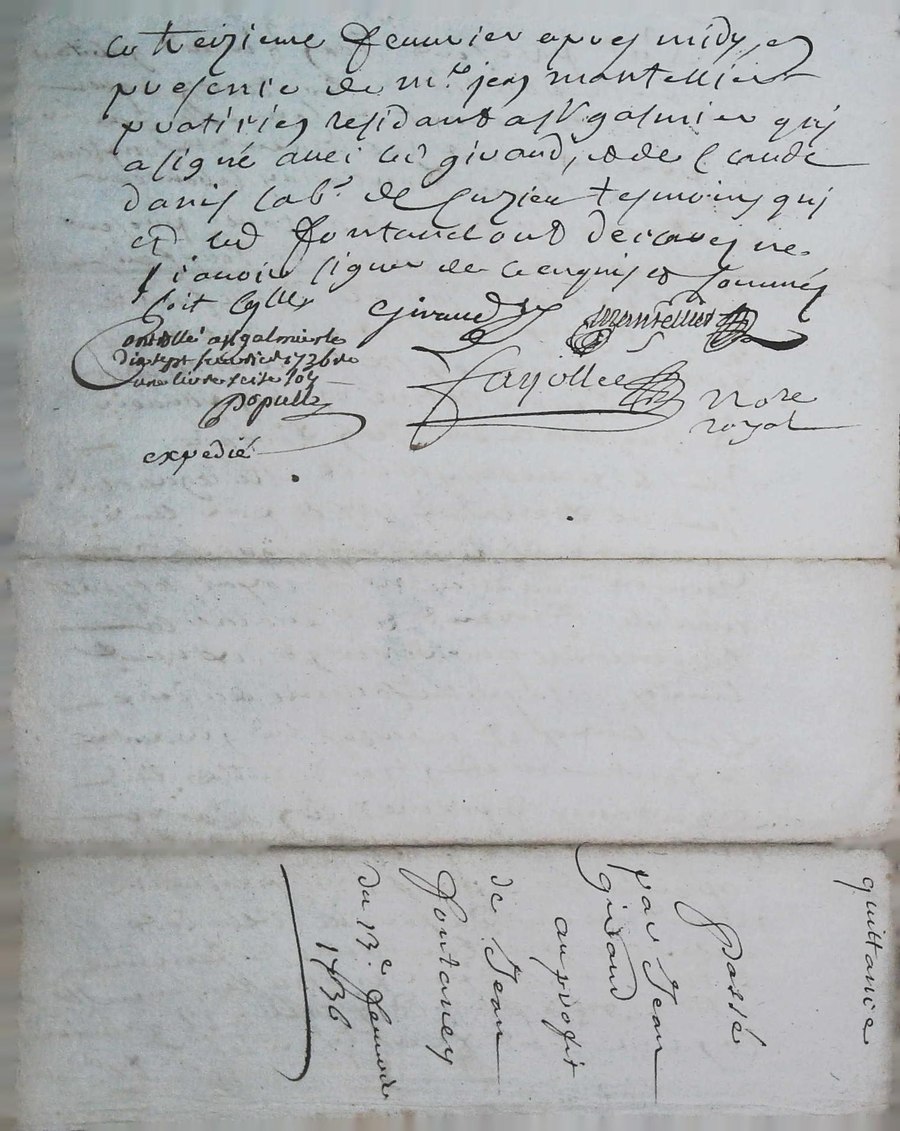 ce treizieme feuvrier apres midy, en
presence de m.re jean montellier
praticien residant a st galmier quy
a signé avec led giraud, et de Claude
danis lab.r de Cuzieu tesmoins quy
et led fontaney ont declarez ne
scavoir signer de ce enquis et sommés
soit Cgllé
Giraud
Montellier
Controllé a st galmier le
dix sept feuvrier 1736 Rc
une livre seise sols
Populle
fayolle
No.re
royal
expedié
quittance
passé
par Jean
giraud
au profit
de Jean
fontaney
du 13.e feuvrier
1736